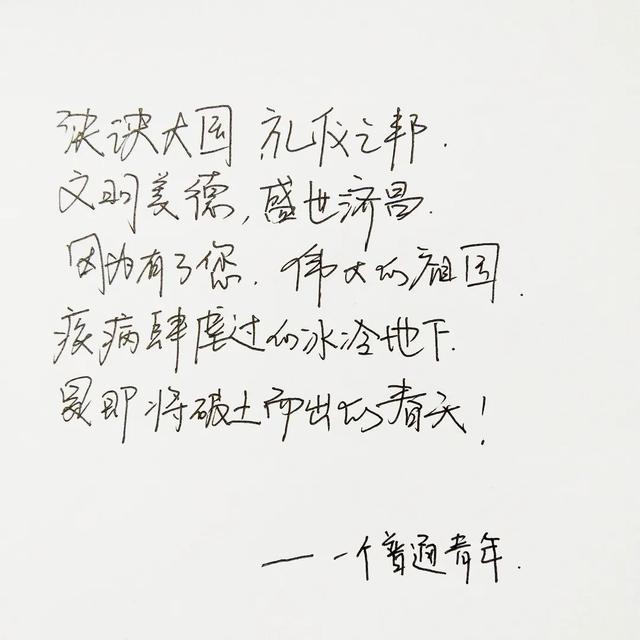 泱泱大国 礼仪之邦.
文明美德,盛世济昌.
因为有了您.伟大的祖国.
疾病肆虐过的冰冷地下.
是即将破土而出的春天!
—— 一个普通青年.